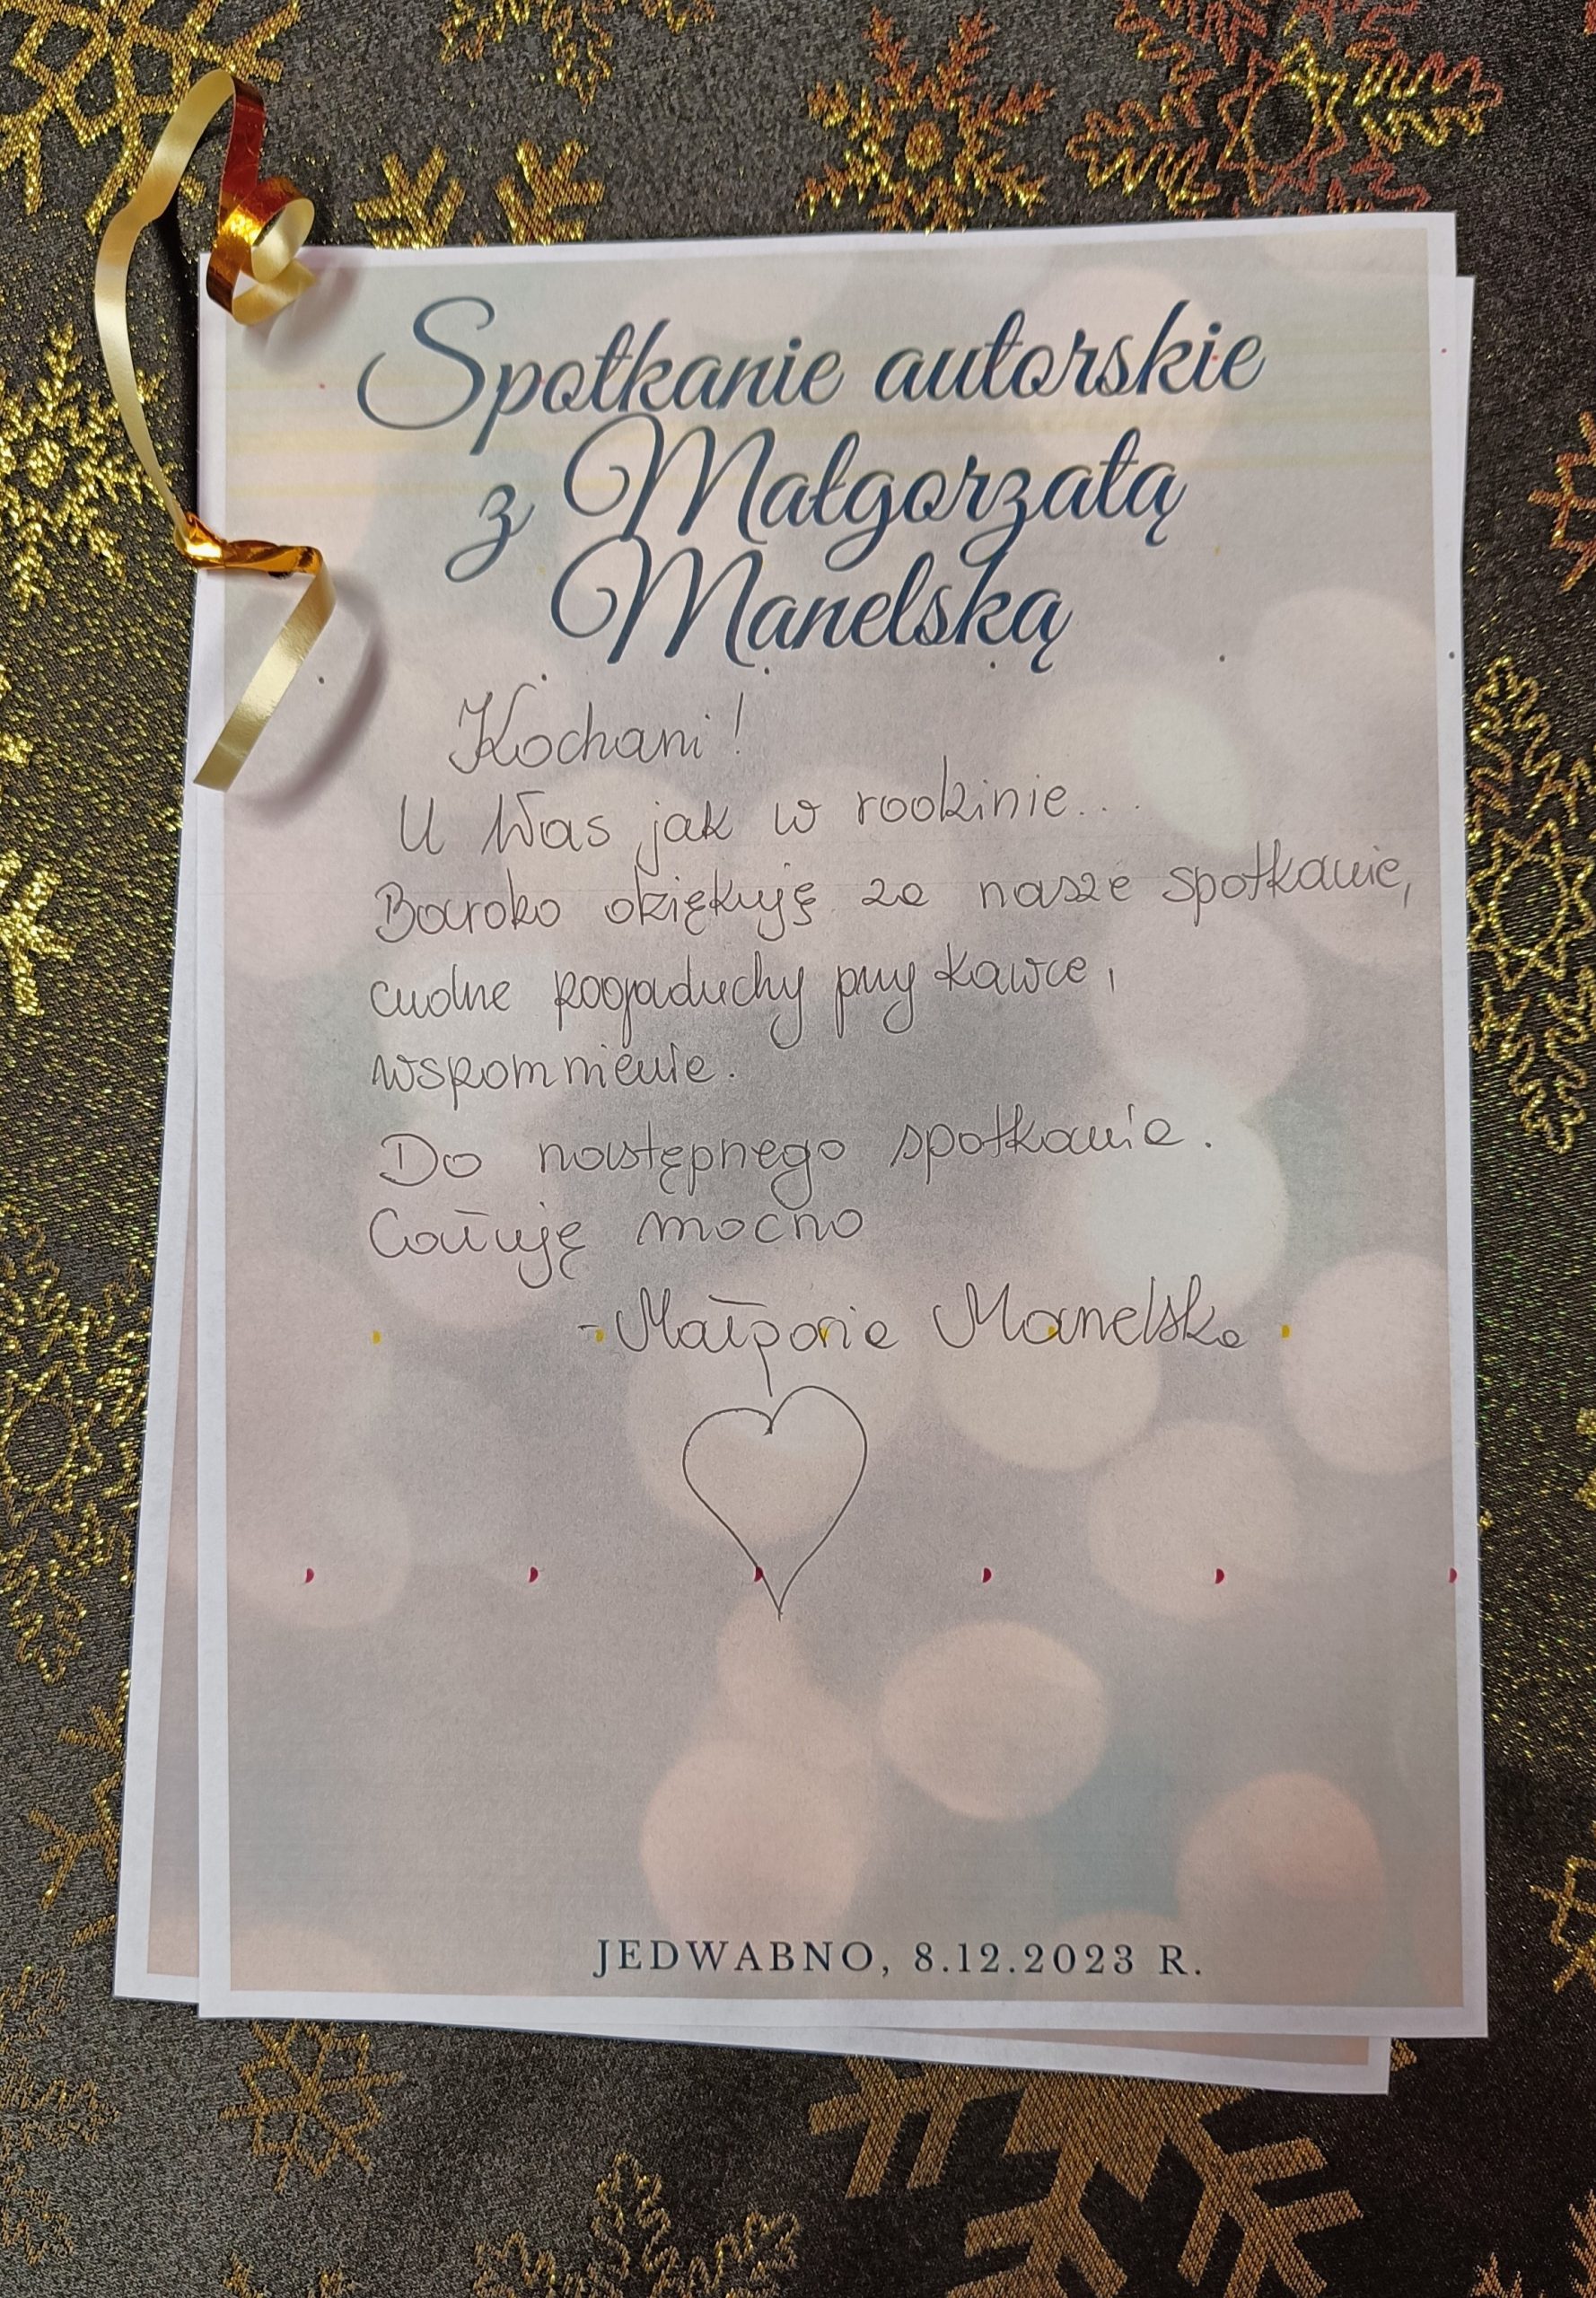 Spotkanie autorskie
z Małgorzatą
Manelską
Kochani!
U Was jak w rodzinie...
Bardzo dziękuję za nasze spotkanie,
cudne pogaduchy przy kawce,
wspomnienia.
Do następnego spotkania.
Całuję mocno
- Małgosia Manelska
JEDWABNO, 8.12.2023 R.